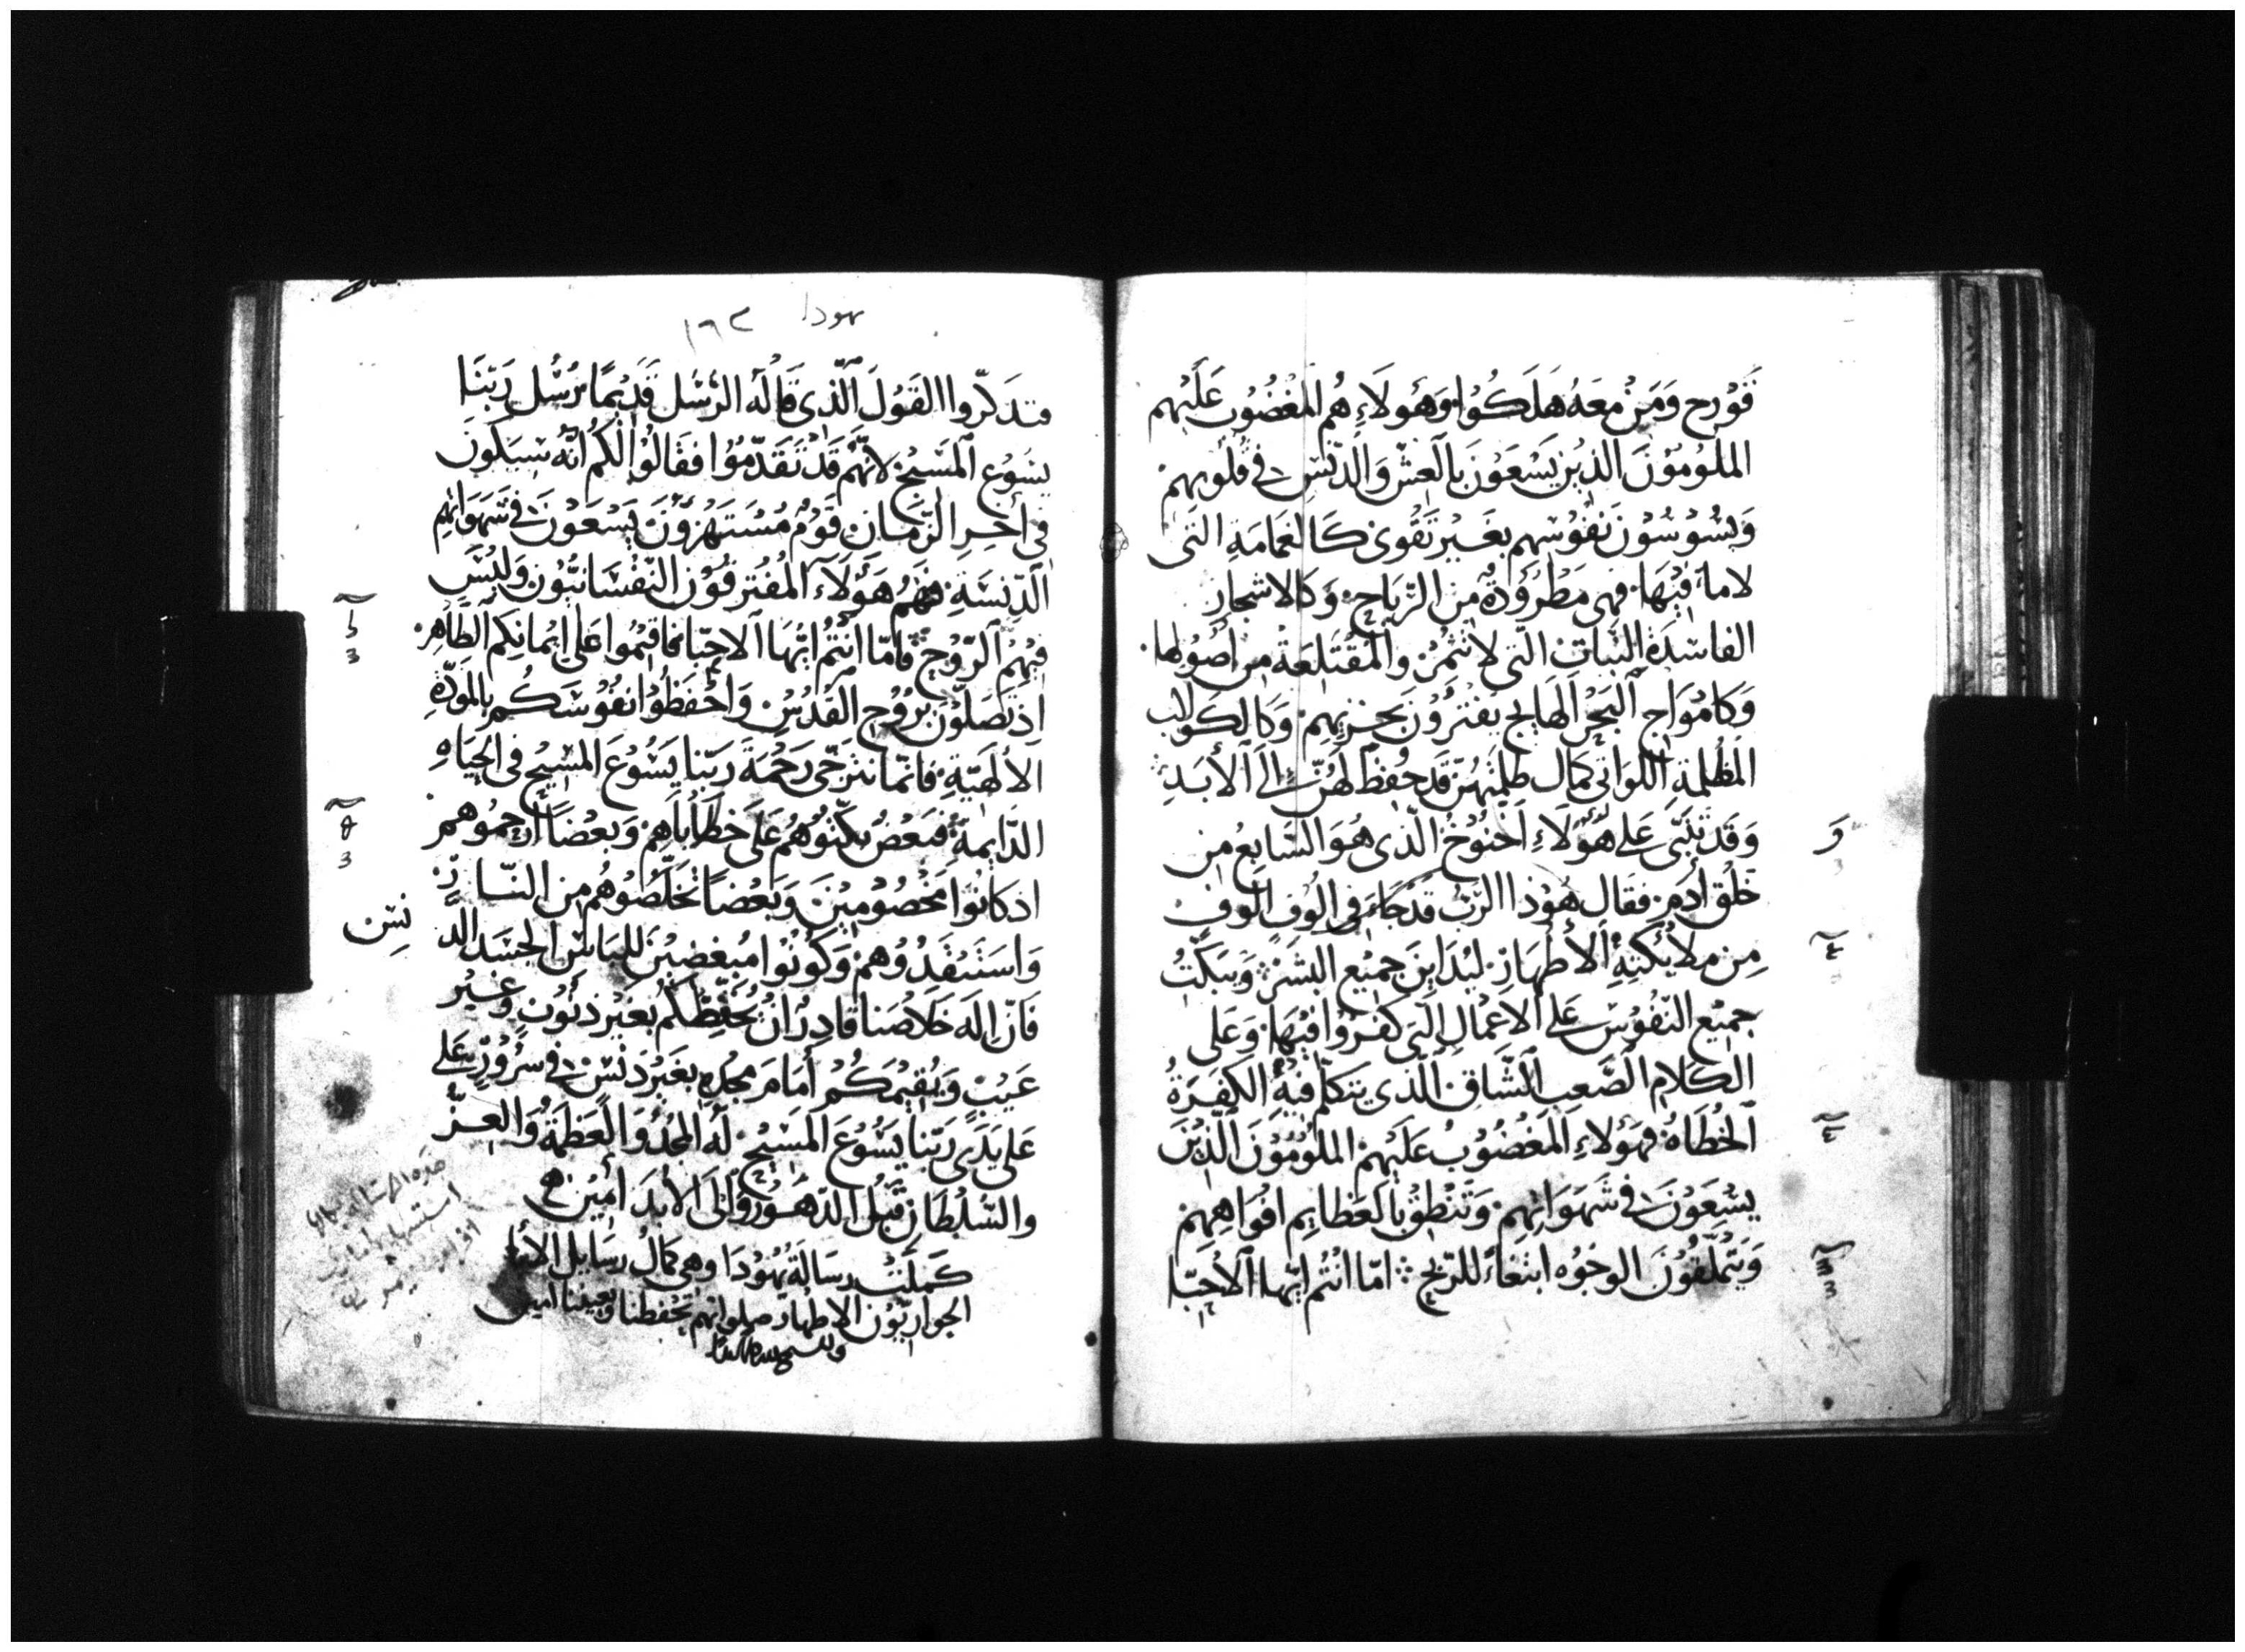 فَقُوْرح وَمَنْ مَعَهُ هَلَكُوْا وَهَوُلَاءِ هُم المغْضُوْب عَلَيْهم
الملُومُوْنَ الذيْن يَسْعَوْنَ بالعشّ وَالدّنَسِ فى قُلوْبهمْ
وَيسُوْسُوْن نفُوْسَهم بغَيْر تَقْوى كَالغمَامَةِ التى
لا ماءَ فيْهَا فهى مَطْرُوْدَةٌ مِن الرّيَاحِ وَكالاشجارِ
الفاسَدَة النّبَات التى لا تثمُرْ والمقْتَلعَة من اصُوْلها
وَكامْوَاج البَحْر الهَايج يفْترُوْنَ بخزيهِمْ وَكالكوَاكب
المظْلمة اللّوَاتى كمَال ظلمتهُنّ قَد حُفِظَ لهُنّ إلَى الأبَدِ
وَقَد تنَبّى عَلى هَؤلَاءِ اَخنُوْخُ الّذى هُوَ السَّابعُ مِن
خَلْق اٰدَم فقَال هُوْذا الرّبّ قَدْ جَاءَ فى الُوْف الُوفٍ
مِن ملائِكَتِهِ الأطهَارْ ليُدَاينَ جميْع البشَرْ وَيبَكّتُ
جميْع النّفُوْسْ عَلى الاعْمَال التى كفَرُوْا فيْهَا وَعَلى
الكلام الصّعب الشّاق الذى يتكَلّم فيْهُ الكفَرَةُ
الخُطَاهُ فهَؤلاءِ المَغضُوْبُ عَلَيْهمْ الملُوْمُوْنَ الّذيْنَ
يسْعَوْنَ فى شَهَوَاتِهِم وَتنْطقْ بالعَظايم افْوَاهِهمْ
وَيتملّقُوْنَ الوجُوْه ابتغَاءً للرّبح امّا انْتُم ايّها الأحِبّا
وَ
يهودا ١٦٤
فتذكّروا القَوْلَ الّذى قَالهُ الرّسُل قَديْمًا رُسُل رَبّنَا
يسُوْع المَسيْح لانّهُم قَدْ تَقَدّمُوْا فقَالُوْا لكُم انّهُ سَيَكونَ
فى أخِرِ الزّمَان قَوْمٌ مُسْتَهْزِؤُنَ يَسْعَوْنَ فى شَهَوَاتهِم
الدّنسَةِ فهُم هَؤلَاءِ المُفْترقُوْن النّفْسَانيّوْن وَلَيْسَ
فيْهِمُ الرّوْح فامّا انْتُم ايّهَا الاحبّا فاقيْمُوا عَلى ايْمانكم الطّاهِر
اذ تصَلّوْن بروْح القُدْسْ وَأحْفَظُوْا نفُوْسَكُمْ بالموَدّةِ
الالهيّةِ فانّما نترَجّى رَحْمَةَ رَبّنا يَسُوْعَ المسِيْح فى الحيَاهِ
الدّايمَةِ فبَعْضٌ بكّتوُهُم عَلى خطَاياهم وَبعضًا أرحمُوهم
اذ كانُوْا مَخْصُوْميْنَ وَبعْضًا تخلّصُوْهُم مِن النّارْ
وَاستَنقدُوْهمْ وَكونُوْا مُبغضيْنَ للبَاسْ الجَسَد الد
نِسْ
فَانّ الِله خَلاصَنا قادِرٌ انْ يُحَفِّظَكُم بغَيْر ذنُوْبٍ وَغَيْر
عَيْبٍ وَيُقيْمَكُمْ أمَامَ مجْدِهِ بغَيْر دَنَسْ فى سرُوْرٍ عَلى
عَلى يَدَى رَبّنا يَسُوْعَ المَسيْح لَهُ المجْدُ وَالعَظَمَةُ وَالعِزّ
والسُّلْطَان قَبْل الدّهُوْر وَالَى الأبَدَ أميْن
كمَلَتْ رسَالَة يَهُوْدَا وَهى كمَال رسَايل الأبا
الحوارِيّوْن الاطهار صلواتهم تحْفظنا وتعيننا امين